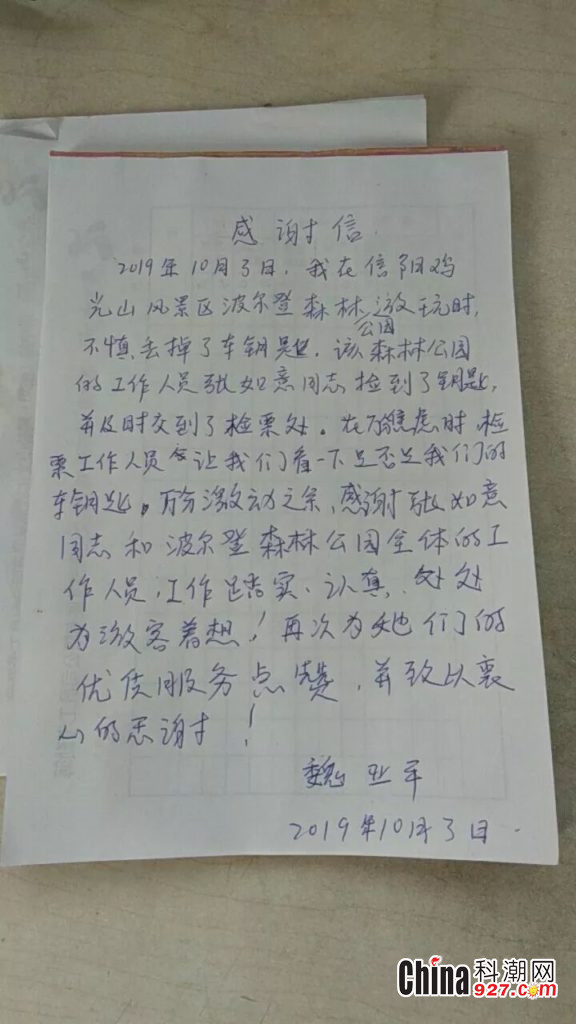 感谢信
2019年10月3日,我在信阳鸡
公山风景区波尔登森林公园游玩时,
不慎丢掉了车钥匙,该森林公园
的工作人员张如意同志捡到了钥匙,
并及时交到了检票处。在万焦虑时,检
票工作人员会让我们看一下是否是我们的
车钥匙。万分激动之余,感谢张如意
同志和波尔登森林公园全体的工
作人员,工作踏实、认真,处处
为游客着想!再次为她们的
优质服务点赞,并致以衷
心的感谢!
魏亚军
2019年10月3日.
China科潮网
927.com